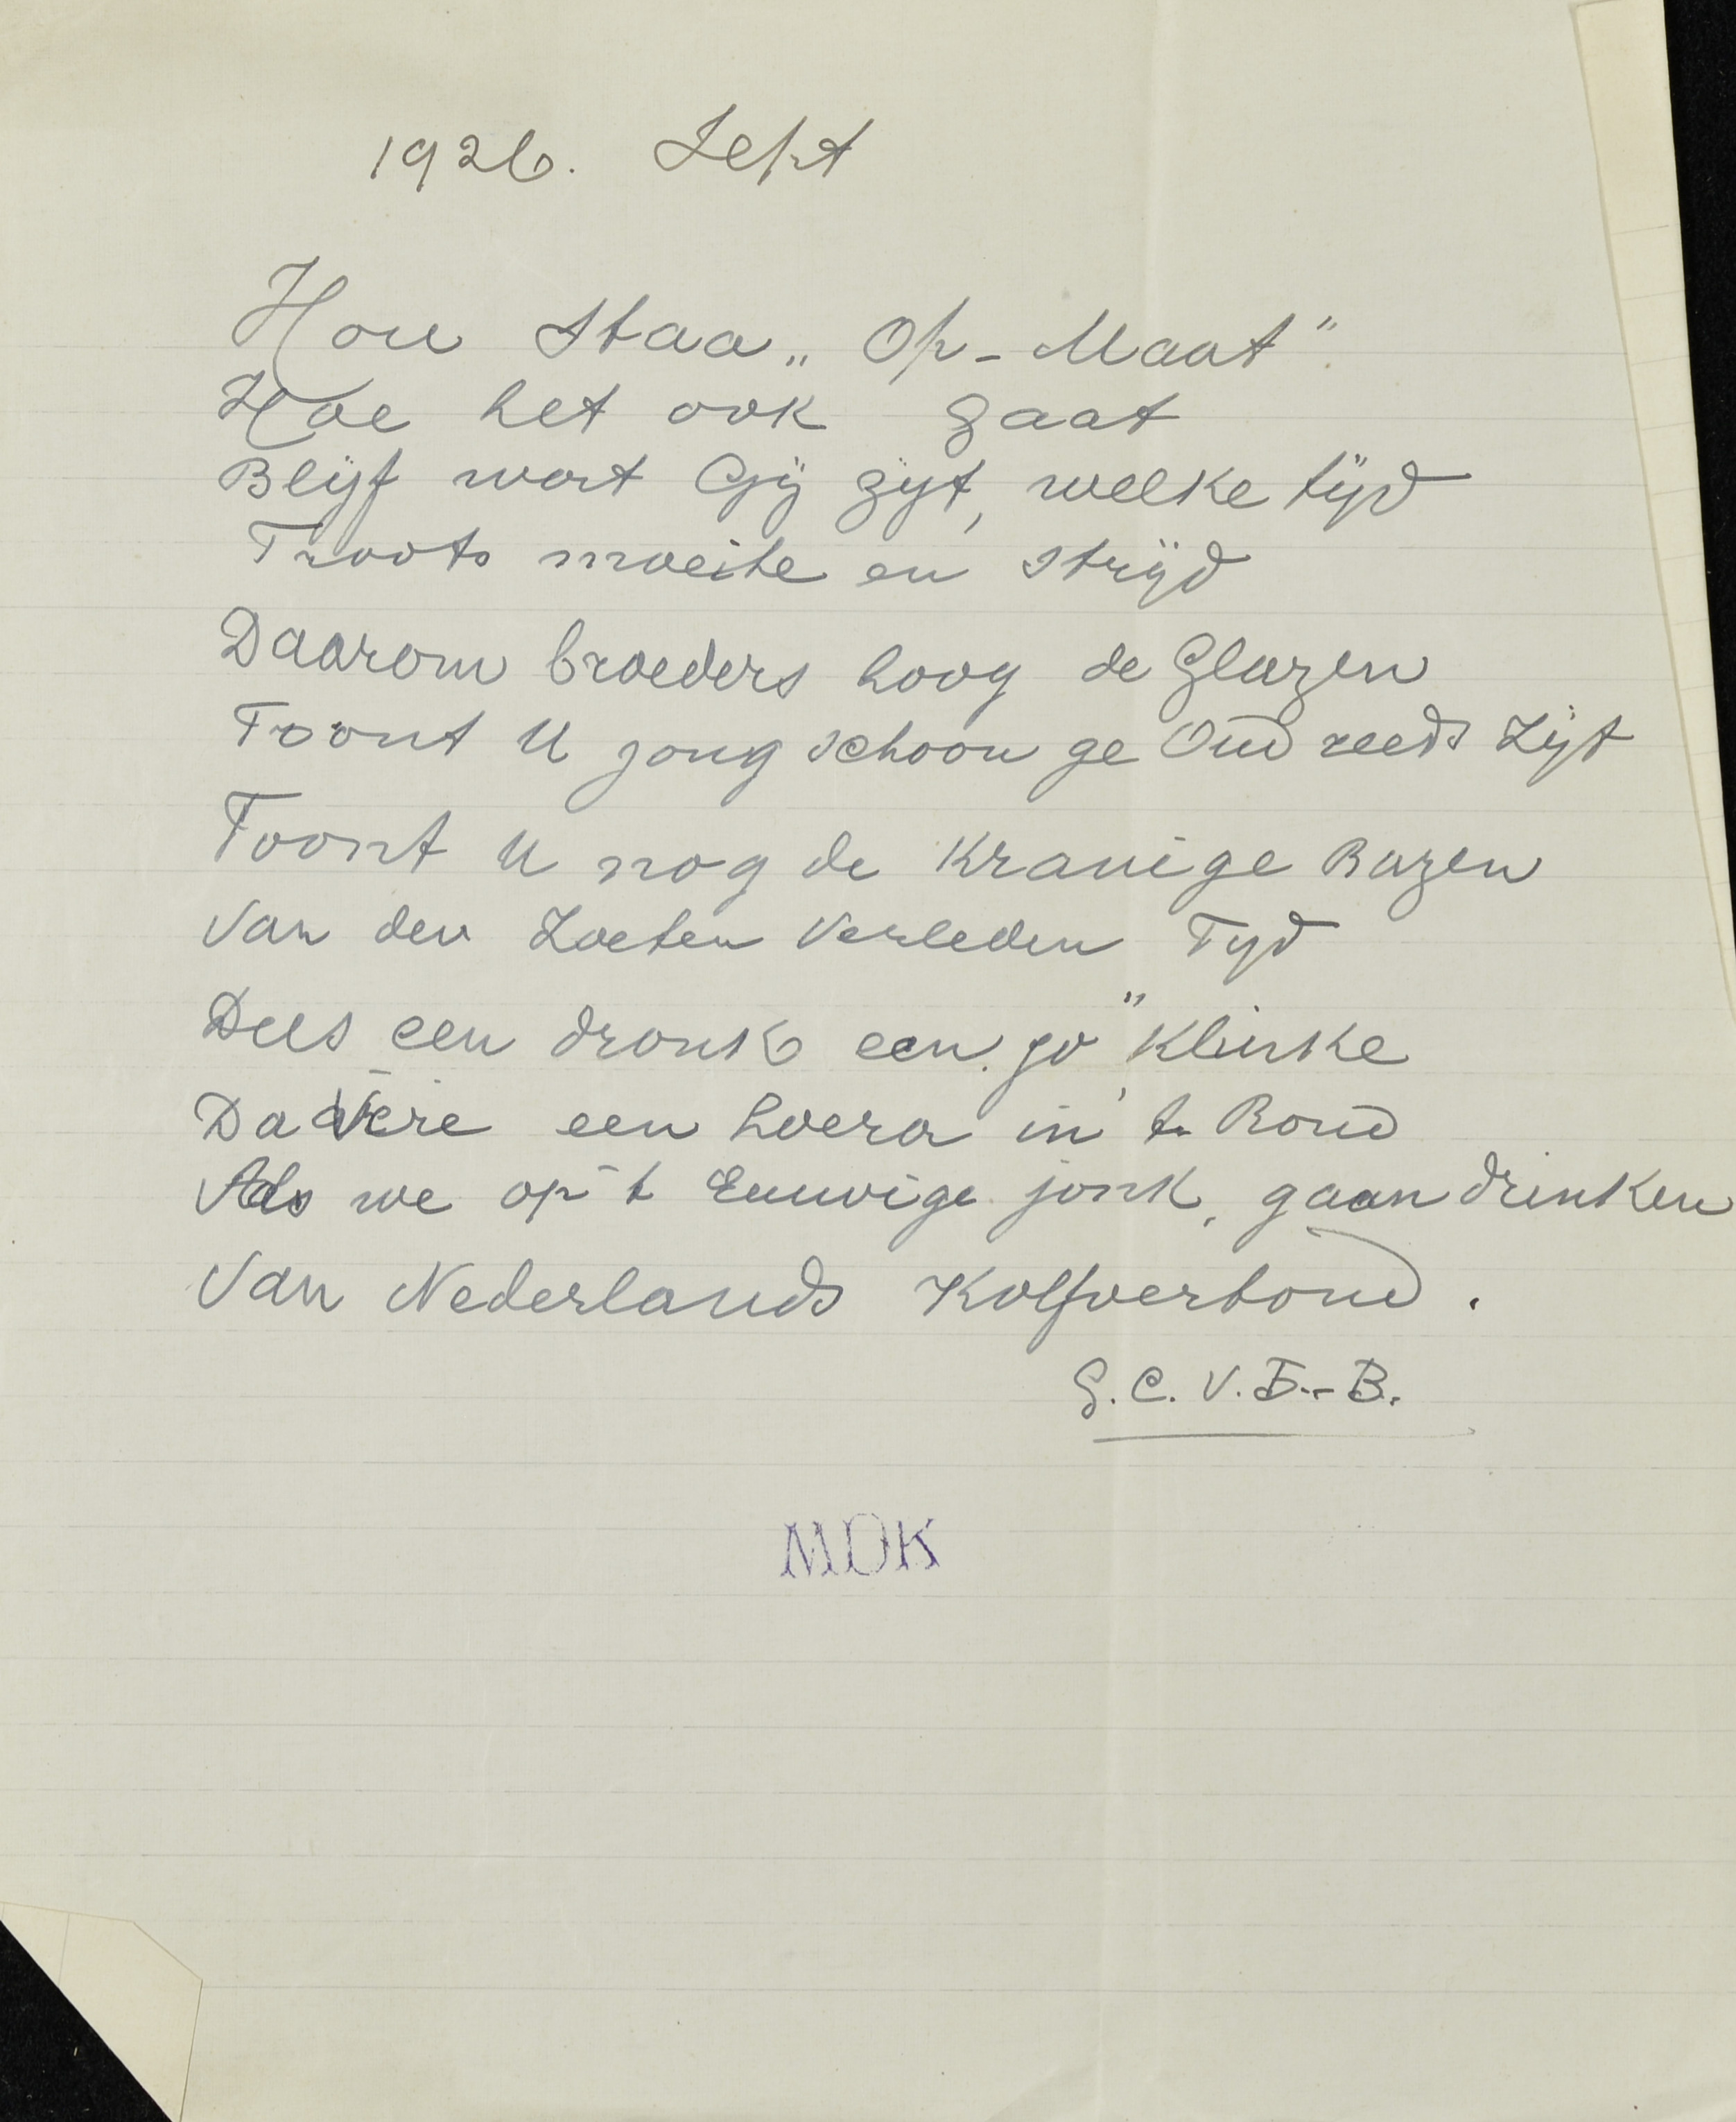 1926. Sept
Hou Staa „Op-Maat".
Hoe het ook gaat
Blijf wat Gij zijt, welke tijd
Troots moeite en strijd
Daarom broeders hoog de Glazen
Toont U jong schoon ge Oud reeds Zijt
Toont U nog de Kranige Bazen
Van den Zoeten Verleden Tyd
Dees een dronk een. jo" Klinke
Davere een hoera in 't Rond
Als we op 't Eeuwige jonk, gaan drinken
Van Nederlands Kolfverbond.
G.C.V.D.-B.
MDK